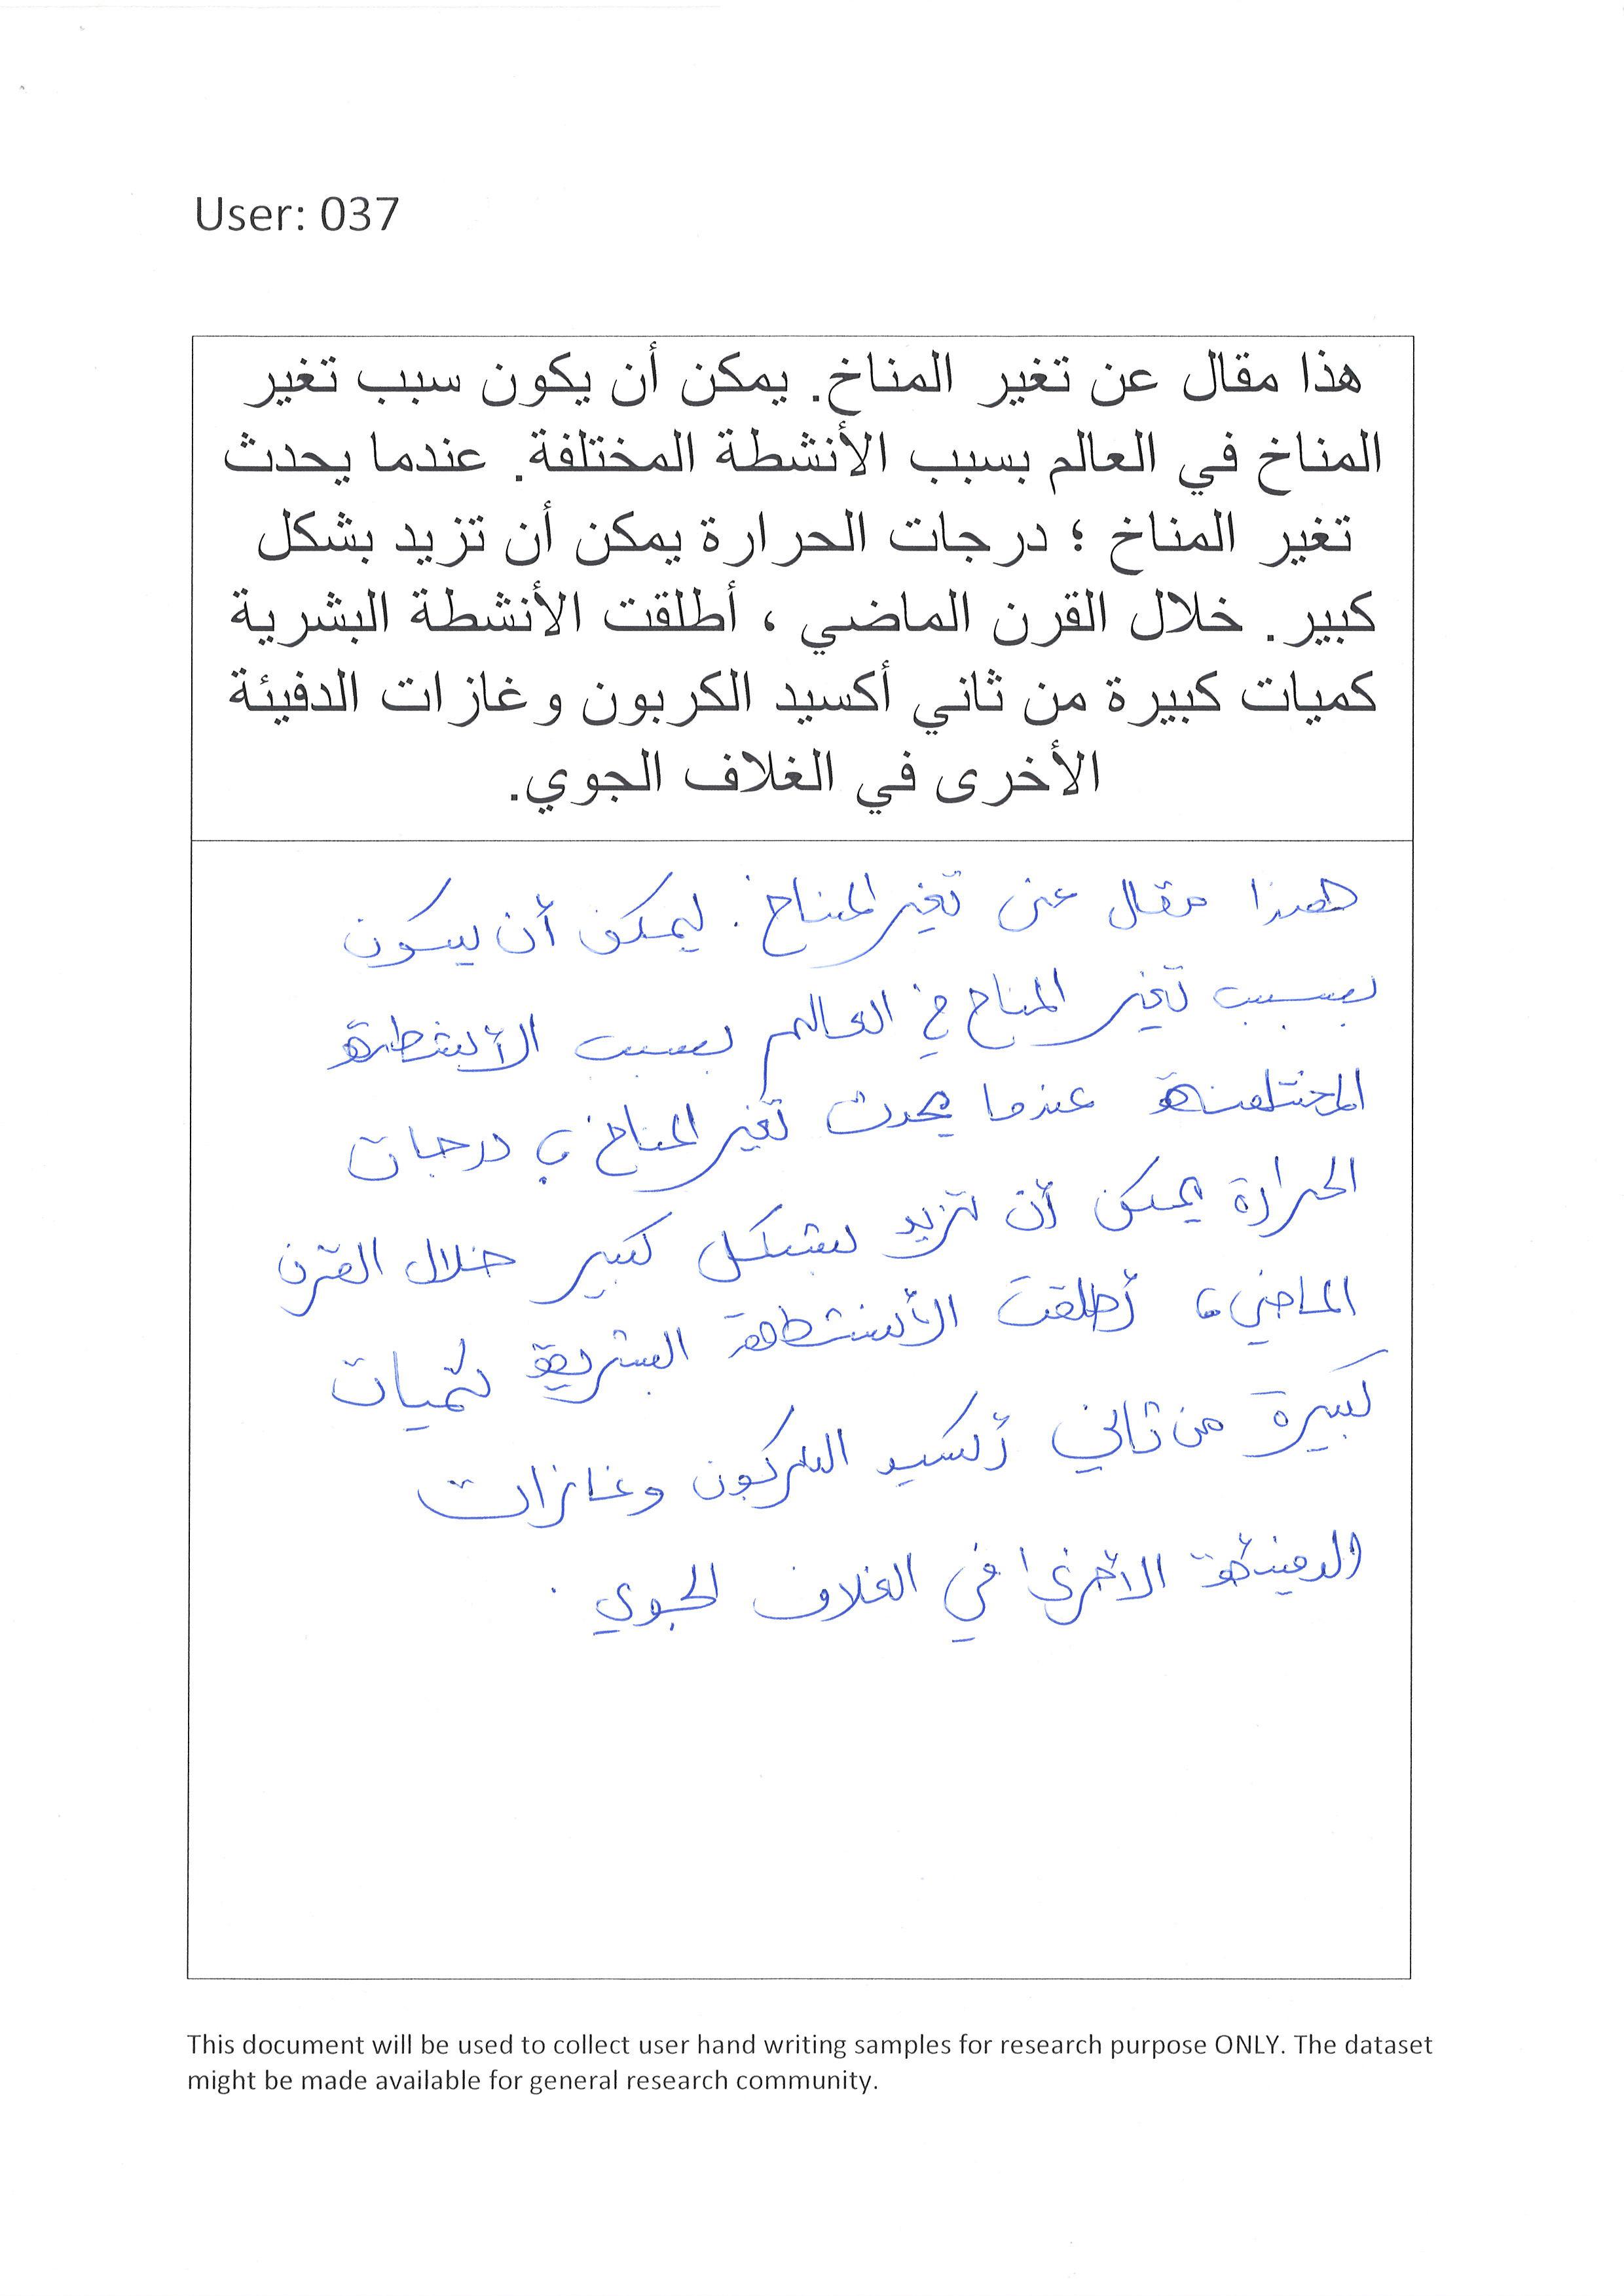 User: 037
هذا مقال عن تغير المناخ. يمكن أن يكون سبب تغير
المناخ في العالم بسبب الأنشطة المختلفة. عندما يحدث
تغير المناخ ؛ درجات الحرارة يمكن أن تزيد بشكل
كبير. خلال القرن الماضي ، أطلقت الأنشطة البشرية
كميات كبيرة من ثاني أكسيد الكربون وغازات الدفيئة
الأخرى في الغلاف الجوي.
هذا مقال عن تغير المناخ. يمكن أن يكون
بسبب تغير المناخ في العالم بسبب الأنشطة
المختلفة عندما يحدث تغير المناخ ؛ درجات
الحرارة يمكن أن تزيد بشكل كبير خلال القرن
الماضي، أطلقت الأنشطة البشرية كميات
كبيرة من ثاني أكسيد الكربون وغازات
الدفيئة الأخرى في الغلاف الجوي.
This document will be used to collect user hand writing samples for research purpose ONLY. The dataset
might be made available for general research community.